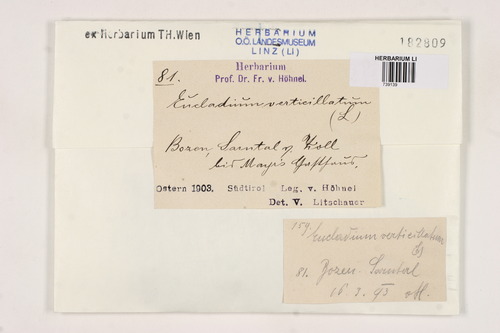 ex Herbarium TH.Wien
HERBARIUM
O.Ö. LANDESMUSEUM
LINZ (LI)
182809
HERBARIUM LI
739139
Herbarium
Prof. Dr. Fr. v. Höhnel.
81.
Eucladium verticillatum
(L)
Bozen, Sarntal
bis Mayrs Gasthaus.
Ostern 1903. Südtirol Leg. v. Höhnel
Det. V. Litschauer
159/ Eucladium verticillatum
81. Bozen. Sarntal